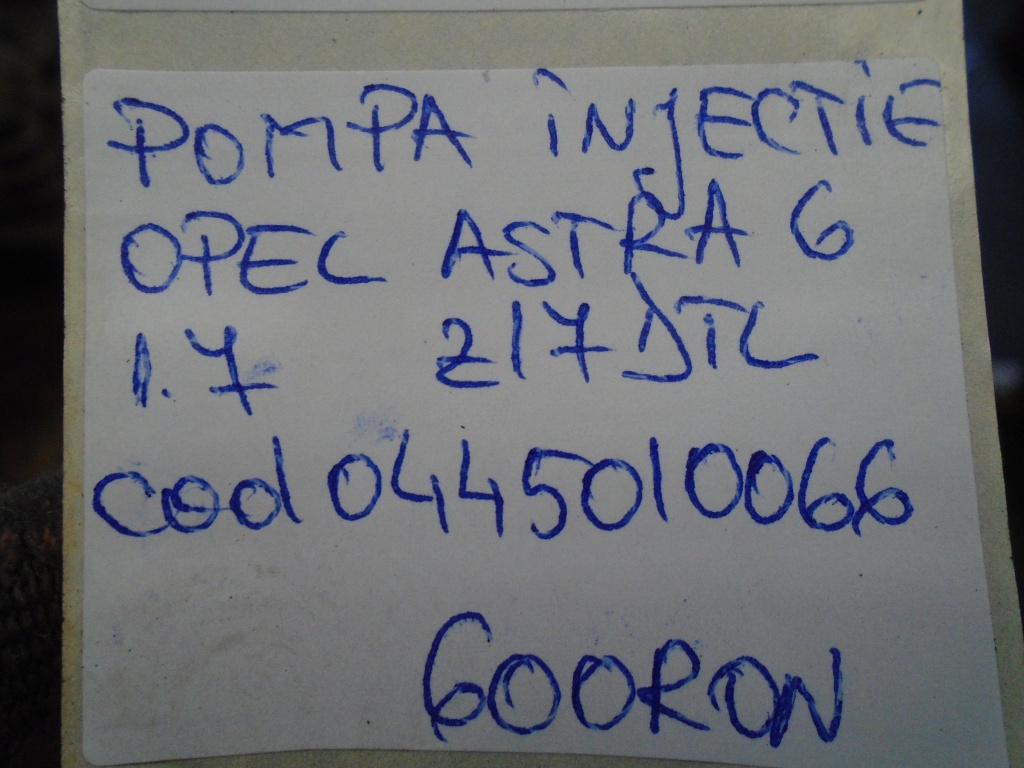 POMPA INJECTIE
OPEL ASTRA G
1.7 Z17DTL
cod 0445010066
600RON